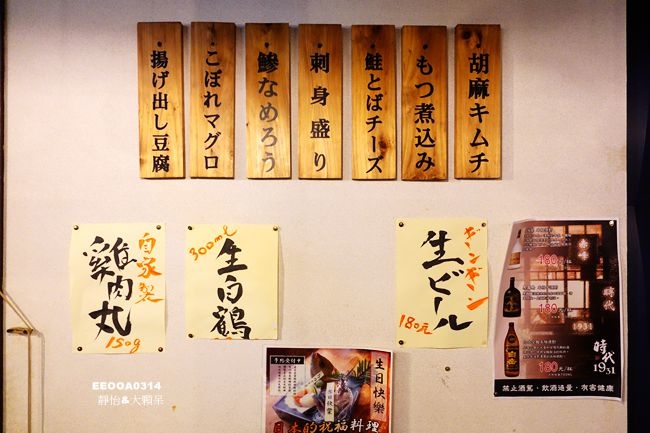 胡麻キムチ
もつ煮込み
鮭とばチーズ
刺身盛り
鯵なめろう
こぼれマグロ
揚げ出し豆腐
自家製
雞肉丸
150g
300ml
生白鶴
生ビール
180元
赤峰
180元/杯
時代
1931
180元/杯
白岳
180元/杯
時代
1931
禁止酒駕，飲酒過量，有害健康
予約受付中
生日快樂
日本的祝福料理
EEOOA0314
靜怡&大顆呆